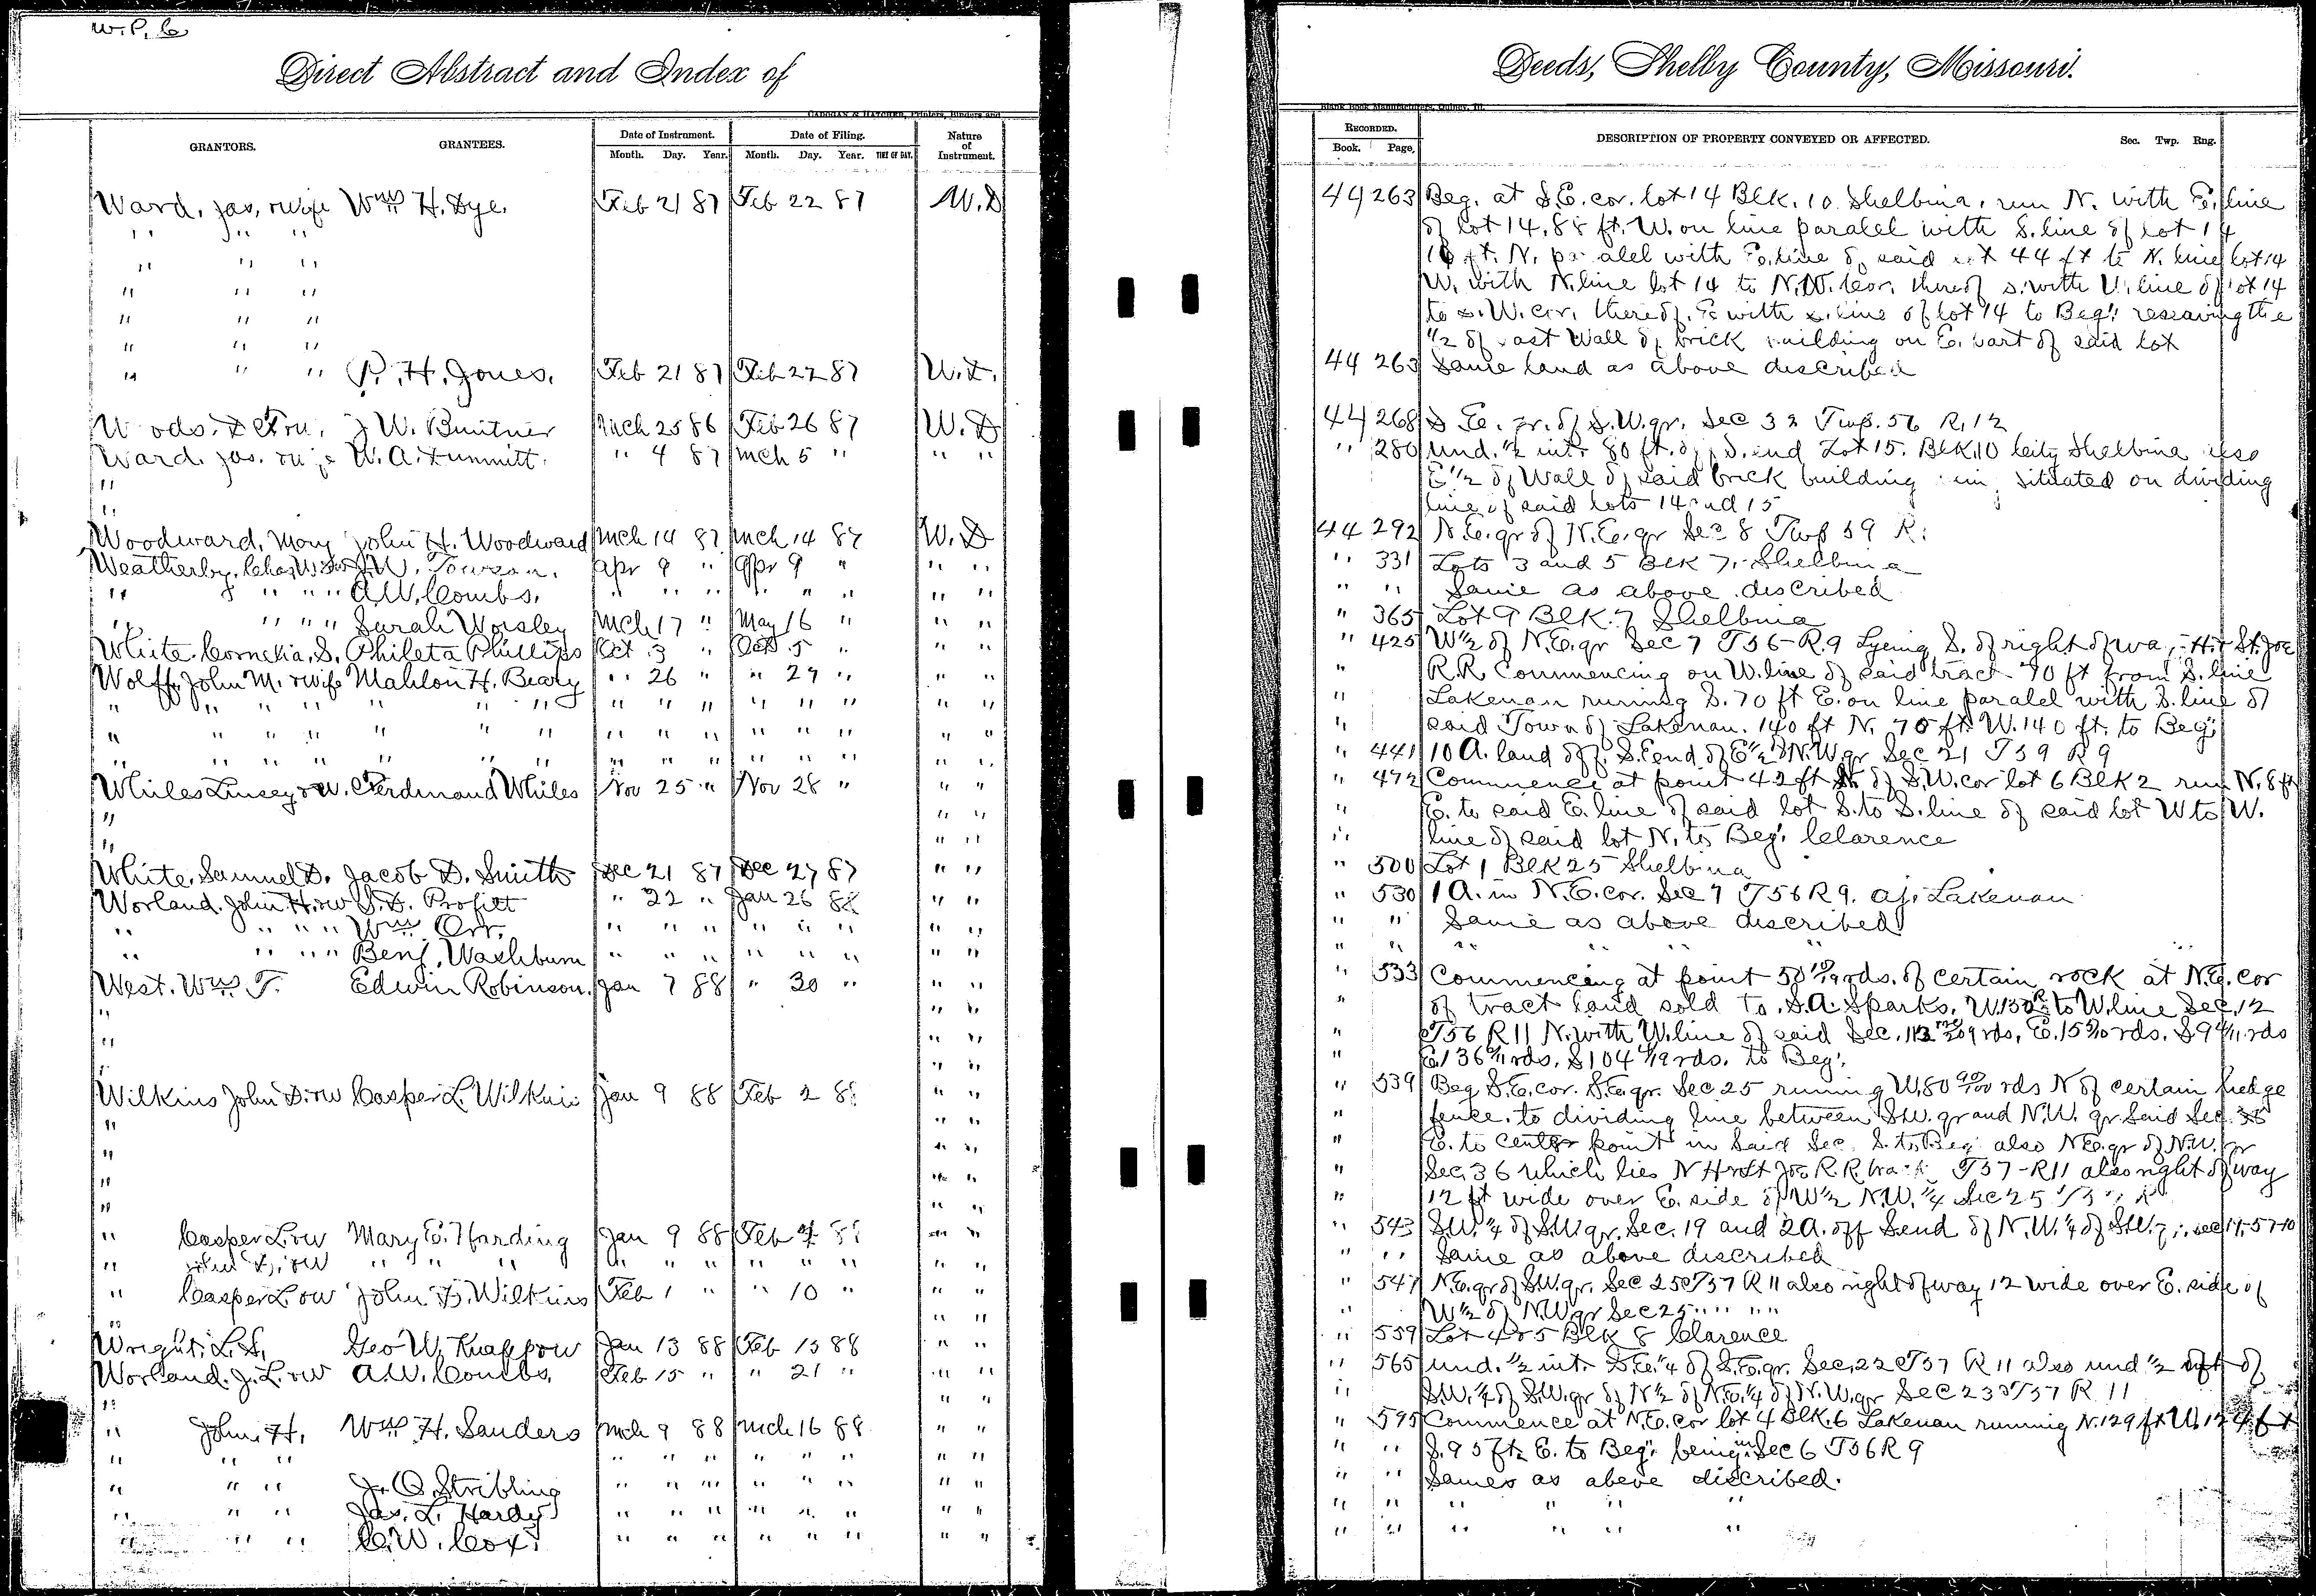 W. P. Co
Direct Abstract and Index of
CADOGAN & HATCHER, Printers, Binders and
GRANTORS. GRANTEES. Date of Instrument. Date of Filing. Nature of Instrument.
Month. Day. Year. Month. Day. Year. TIME OF DAY.
Ward, Jas, & wife Wm H. Dye. Feb 21 87 Feb 22 87 W.D
" " "
" " "
" " "
" " "
" " "
" " " P. H. Jones. Feb 21 87 Feb 22 87 W.D.
J W. Buitner Mch 25 86 Feb 26 87 W.D
Ward. Jas. W. A. " 4 87 Mch 5 " " "
"
"
Woodward, Mary John H. Woodward Mch 14 87 Mch 14 87 W.D
Weatherby, Chas J.W. Towson. Apr 9 " Apr 9 " " "
" " " " A.W. Combs. " " " " " " " "
" " " " Sarah Worsley Mch 17 " May 16 " " "
White. Cornelia, S. Phileta Phillips Oct 3 " Oct 5 " " "
Wolff, John M. & wife Mahlon H. Beary " 26 " " 29 " " "
" " " " " " " " " " " " " " "
" " " " " " " " " " " " " " "
" " " " " " " " " " " " " " "
Whiles Linsey & w. Ferdinand Whiles Nov 25 " Nov 28 " " "
" " "
" " "
White, Samuel D. Jacob D. Smith Dec 21 87 Dec 27 87 " "
Worland. John H. & w S. D. Profitt " 22 " Jan 26 88 " "
" " " " Wm Orr. " " " " " " " "
" " " " Benj. Washburn " " " " " " " "
West. Wm T. Edwin Robinson. Jan 7 88 " 30 " " "
" " "
" " "
" " "
Wilkins John D. & w Casper L. Wilkins Jan 9 88 Feb 2 88 " "
" " "
" " "
" " "
" " "
" Casper L. & w Mary E. Harding Jan 9 88 Feb 4 88 " "
" John D. & w " " " " " " " " " " "
" Casper L & w John D. Wilkins Feb 1 " " 10 " " "
" " "
Wright. L. S. Geo W. Knappow Jan 13 88 Feb 13 88 " "
Worland. J. L. & w A.W. Combs. Feb 15 " " 21 " " "
" " "
" John. H. Wm H. Sanders Mch 9 88 Mch 16 88 " "
" " " " " " " " " " "
" " " J. O. Stribling " " " " " " " "
" " " Jas. L. Hardy " " " " " " " "
" " " C. W. Cox. " " " " " " " "
Deeds, Shelby County, Missouri.
Blank Book Manufacturers, Quincy, Ill.
RECORDED. DESCRIPTION OF PROPERTY CONVEYED OR AFFECTED. Sec. Twp. Rng.
Book. Page.
44 263 Beg. at S.E. cor. lot 14 Blk. 10 Shelbina, run N. with E. line
of lot 14. 88 ft. W. on line paralel with S. line of lot 14
ft. N. paralel with E. line of said lot 44 ft to N. line lot 14
W. with N. line lot 14 to N.W. cor. thereof S. with W. line of lot 14
to S. W. cor. thereof. E. with S. line of lot 14 to Beg. the
1/2 of east Wall of brick building on E. part of said lot
44 263 Same land as above discribed
44 268 S E. qr. of S.W. qr. Sec 32 Twp. 56 R. 12
" 280 Und. 1/2 int. 80 ft. of S. end Lot 15. Blk 10 City Shelbina also
E 1/2 of Wall of said brick building situated on dividing
line of said lots 14 and 15
44 292 N.E. qr of N.E. qr Sec 8 Twp 59 R.
" 331 Lots 3 and 5 Blk 7. Shelbina
" " Same as above discribed
" 365 Lot 9 Blk. 7 Shelbina
" 425 W 1/2 of N.E. qr Sec 7 T56-R.9 Lyeing S. of right of way H & St. Joe
" R.R Commencing on W. line of said tract 70 ft from S. line
" Lakenan runing S. 70 ft E. on line paralel with S. line of
" said Town of Lakenan. 140 ft N. 70 ft. W. 140 ft. to Beg.
" 441 10 A. land off S. end of E 1/2 N.W. qr Sec 21 T59 R9
" 472 Commence at point 42 ft N. of S.W. cor lot 6 Blk 2 run N. 8 ft
" E. to said E. line of said lot S. to S. line of said lot W to W.
" line of said lot N. to Beg. Clarence
" 500 Lot 1 Blk 25 Shelbina
" 530 1 A. in N.E. cor. Sec 7 T56 R9. aj. Lakenan
" " Same as above discribed
" " " " " "
" 533 Commencing at point 50 rds. of certain rock at N.E. cor
" of tract land sold to S.A. Sparks, to W line Sec. 12
" T56 R11 N. with W. line of said Sec. rds, E. rds. S rds
" rds. to Beg.
" 539 Beg S.E. cor. S.E. qr. Sec 25 runing W. 80 rds N of certain hedge
" fence. to dividing line between S.W. qr and N.W. qr Said Sec. 35
" E. to center point in said Sec. S. to Beg also N.E. qr of N.W. qr
" Sec. 36 which lies N H & St Joe R.R track T57-R11 also right of way
" 12 ft wide over E. side of W 1/2 N.W. 1/4 Sec 25
" 543 S.W. 1/4 of S.W. qr. Sec. 19 and 2 A. off S. end of N.W. 1/4 of S.W. sec 19-57-10
" " Same as above discribed
" 547 N.E. qr of S.W. qr. Sec 25 T57 R11 also right of way 12 wide over E. side of
" W 1/2 of N.W. qr Sec 25 " " " "
" 559 Lot 4 & 5 Blk 8 Clarence
" 565 Und. 1/2 int. S.E. 1/4 of S.E. qr. Sec. 22 T57 R11 also und 1/2 of
" S.W. 1/4 of S.W. qr of N 1/2 of N.E. 1/4 of N.W. qr Sec 23 T57 R 11
" 595 Commence at N.E. cor lot 4 Blk. 6 Lakenan running N. 129 ft W. 124 ft
" " S. 95 ft. E. to Beg. being in Sec 6 T56 R9
" " Sames as above discribed.
" " " " " "
" " " " " "